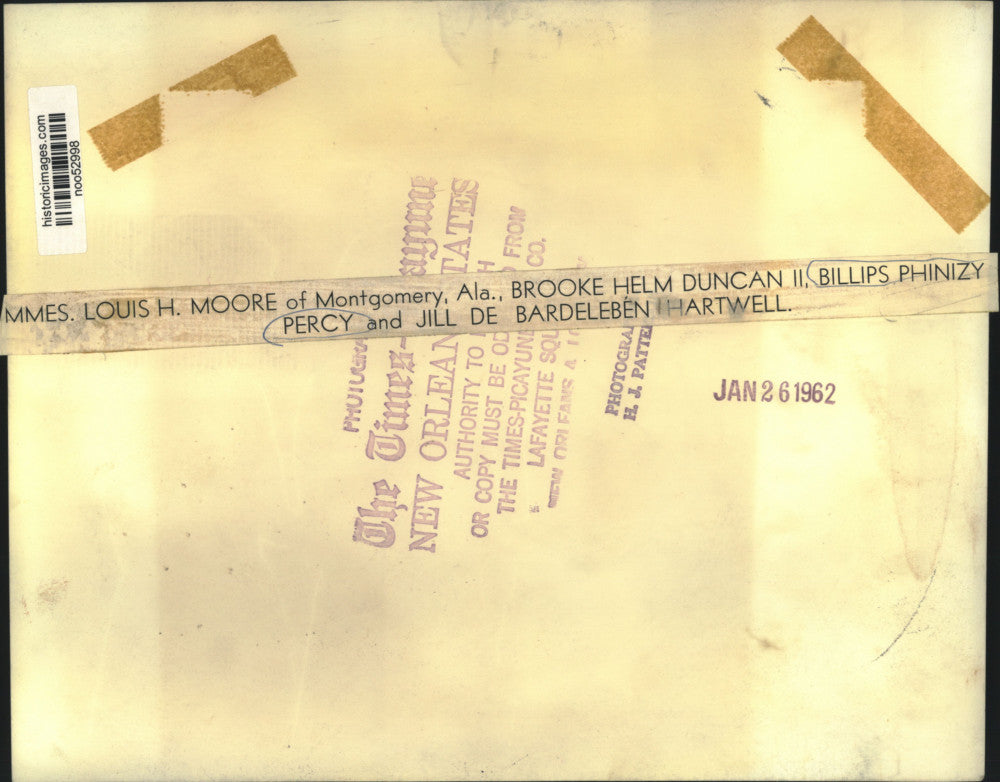 historicimages.com
noo52998
MMES. LOUIS H. MOORE of Montgomery, Ala., BROOKE HELM DUNCAN II, BILLIPS PHINIZY
PERCY and JILL DE BARDELEBEN HARTWELL.
The Times-
NEW ORLEAN TATES
AUTHORITY TO
OR COPY MUST BE FROM
THE TIMES-PICAYUN CO.
LAFAYETTE SQU
PHOTOGRA
H. J. PATTE
JAN 26 1962